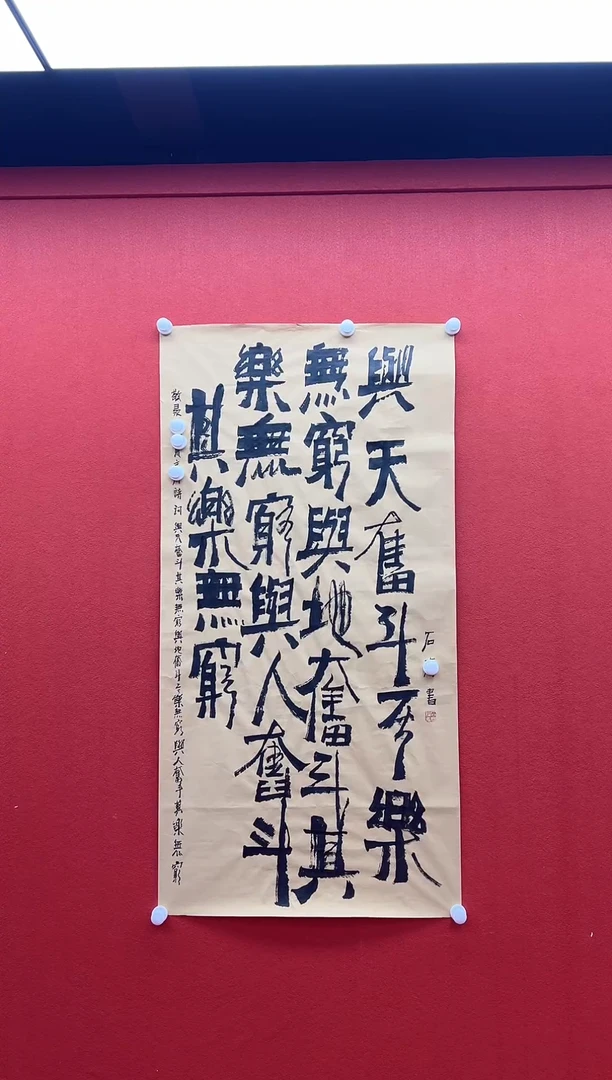 石 書
與天奮斗亓樂
無窮與地奮斗其
樂無窮與人奮斗
其樂無窮
敬录 詩詞與天奮斗其樂無窮與地奮斗亓樂無窮與人奮斗其樂無窮